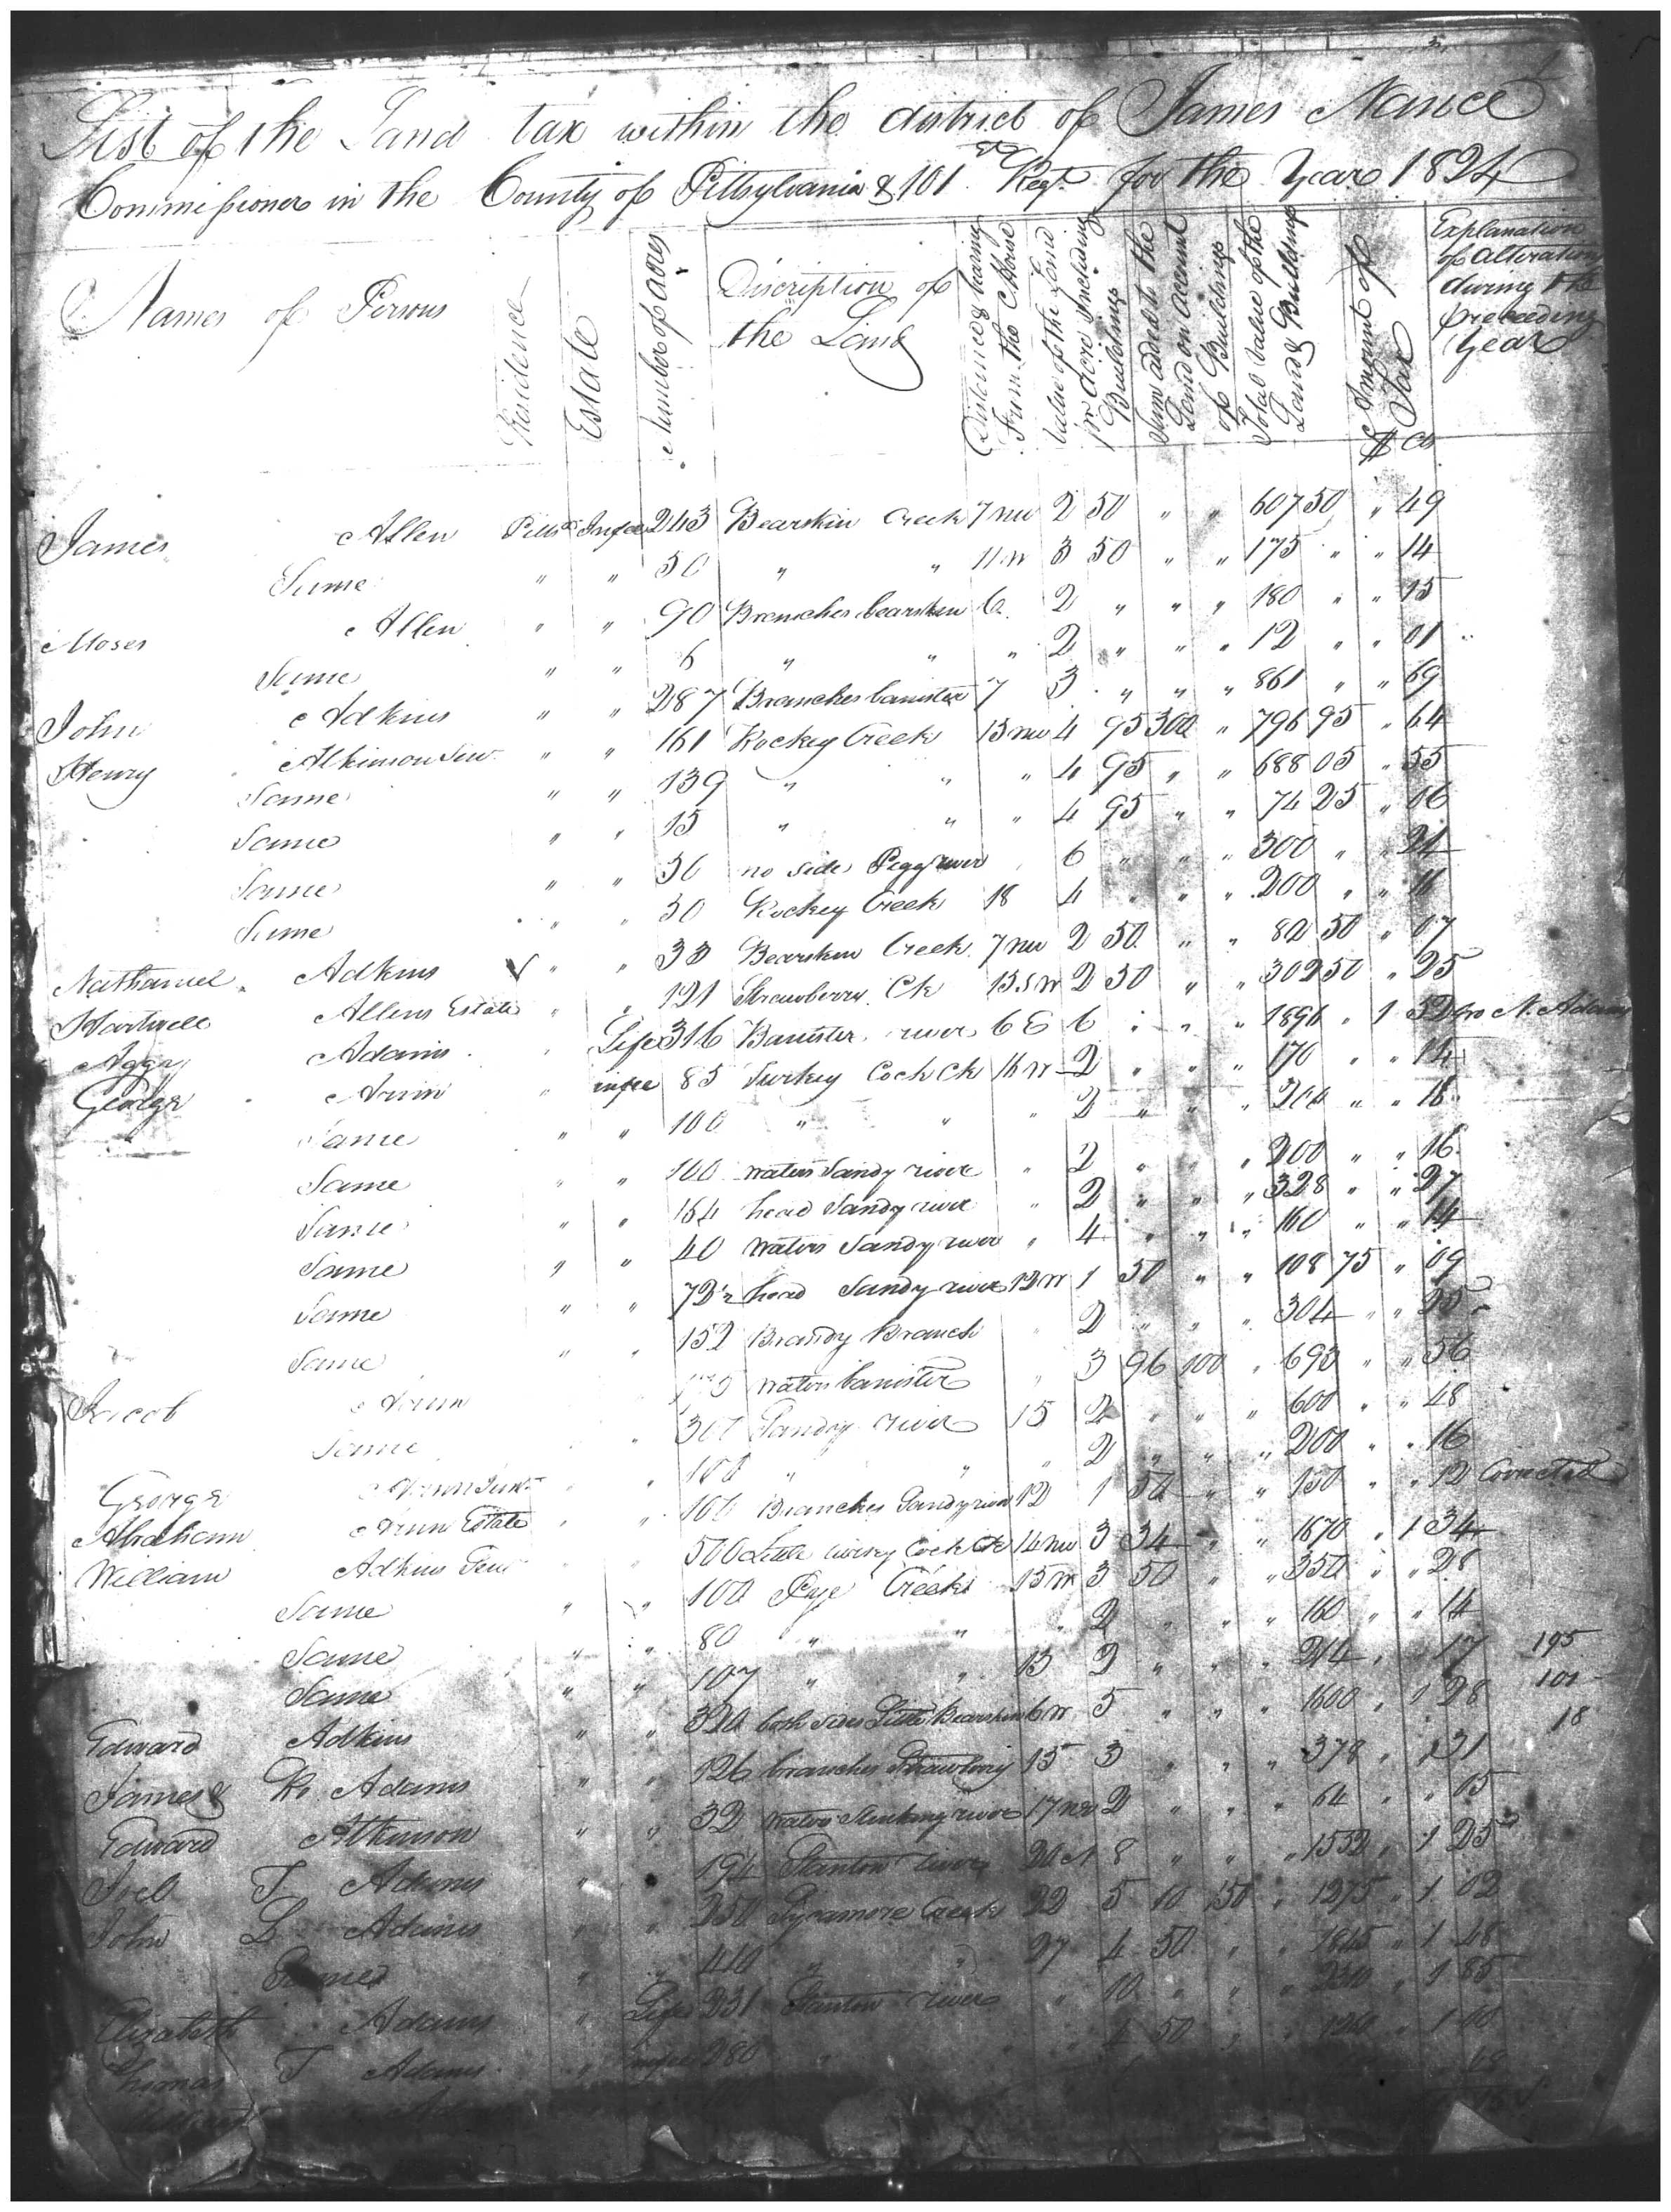 List of the Land tax within the district of James Nance
Commissioner in the County of Pittsylvania & 101 Regt for the Year 1824
Names of Persons
Residence
Estate
Number of acres
Discription of the Land
Distance & bearing From the C House
Value of the Land pr acre Including Buildings
Sum added to the Land on account of Buildings
Total Value of the Land & Buildings
Amount of Tax
$ Cts
Explanation of alteration during the preceeding Year
James Allen Infee 243 Bearskin Creek 7 nw 2 50 " " 607 50 " 49
Same " " 50 " " 11 W 3 50 " " 175 " " 14
Moses Allen " " 90 Branches bearskin 6 2 " " " 180 " " 15
Same " " 6 " " " 2 " " " 12 " " 01
John Adkins " " 287 Branches banister 7 3 " " " 861 " " 69
Henry Atkinson Senr " " 161 Rockey Creek 13 nw 4 95 300 " 796 95 " 64
Same " " 139 " " " 4 95 " " 688 05 " 55
Same " " 15 " " " 4 95 " " 74 25 " 06
Same " " 50 no side Pigg river 6 " " " 300 " " 24
Same " " 50 Rockey Creek 18 4 " " " 200 " " 16
Nathaniel Adkins " " 33 Bearskin Creek 7 nw 2 50 " " 82 50 " 07
Hartwell Allens Estate " " 121 Strawberry Ck 13 SW 2 50 " " 302 50 " 25
Adams " Life 316 Banister river 6 E 6 " " " 1896 " 1 52 N. Adams
George " infee 85 Turkey Cock Ck 16 W 2 " " " 170 " " 14
Same " " 100 " " " 2 " " " 200 " " 16
Same " " 100 waters Sandy river " 2 " " " 200 " " 16
Same " " 164 head Sandy river " 2 " " " 328 " " 27
Same " " 40 waters Sandy river " 4 " " " 160 " " 14
Same " " 72½ head Sandy river 12 W 1 50 " " 108 75 " 09
Same " " 152 Brandy Branch " 2 " " " 304 " " 25
Jacob waters banister " 3 96 100 " 693 " " 56
Same " 300 Sandy river 15 2 " " " 600 " " 48
George " 100 " " " 2 " " " 200 " " 16
Abraham Estate " " 100 Branches Sandy river 12 1 50 " " 150 " " 12 Corrected
William Adkins Senr 500 Little turkey Cock Ck 14 nw 3 34 " " 1670 " 1 34
Same " " 100 Creek 15 W 3 50 " " 350 " " 28
Same " " 80 " " " 2 " " " 160 " " 14
Same " " 107 " " 15 2 " " " 214 " " 17 195
Edward Adkins " " 320 both sides Little Bearskin 6 W 5 " " " 1600 " 1 28 101
James & Adams " " 126 branches Strawberry 15 3 " " " 378 " " 31 18
Edward Atkinson " " 32 waters Stinking river 17 no 2 " " " 64 " " 05
Joel T Adams " " 194 Stanton river 20 N 8 " " " 1552 " 1 25
John L Adams " " 250 Sycamore Creek 22 5 10 150 " 1275 " 1 02
Same " " 410 " " 27 4 50 " " 1845 " 1 48
Elizabeth Adams " Life 231 Stanton river " 10 " " " 2310 " 1 85
Thomas T Adams " infee 280 " " 4 50 " " 1260 " 1